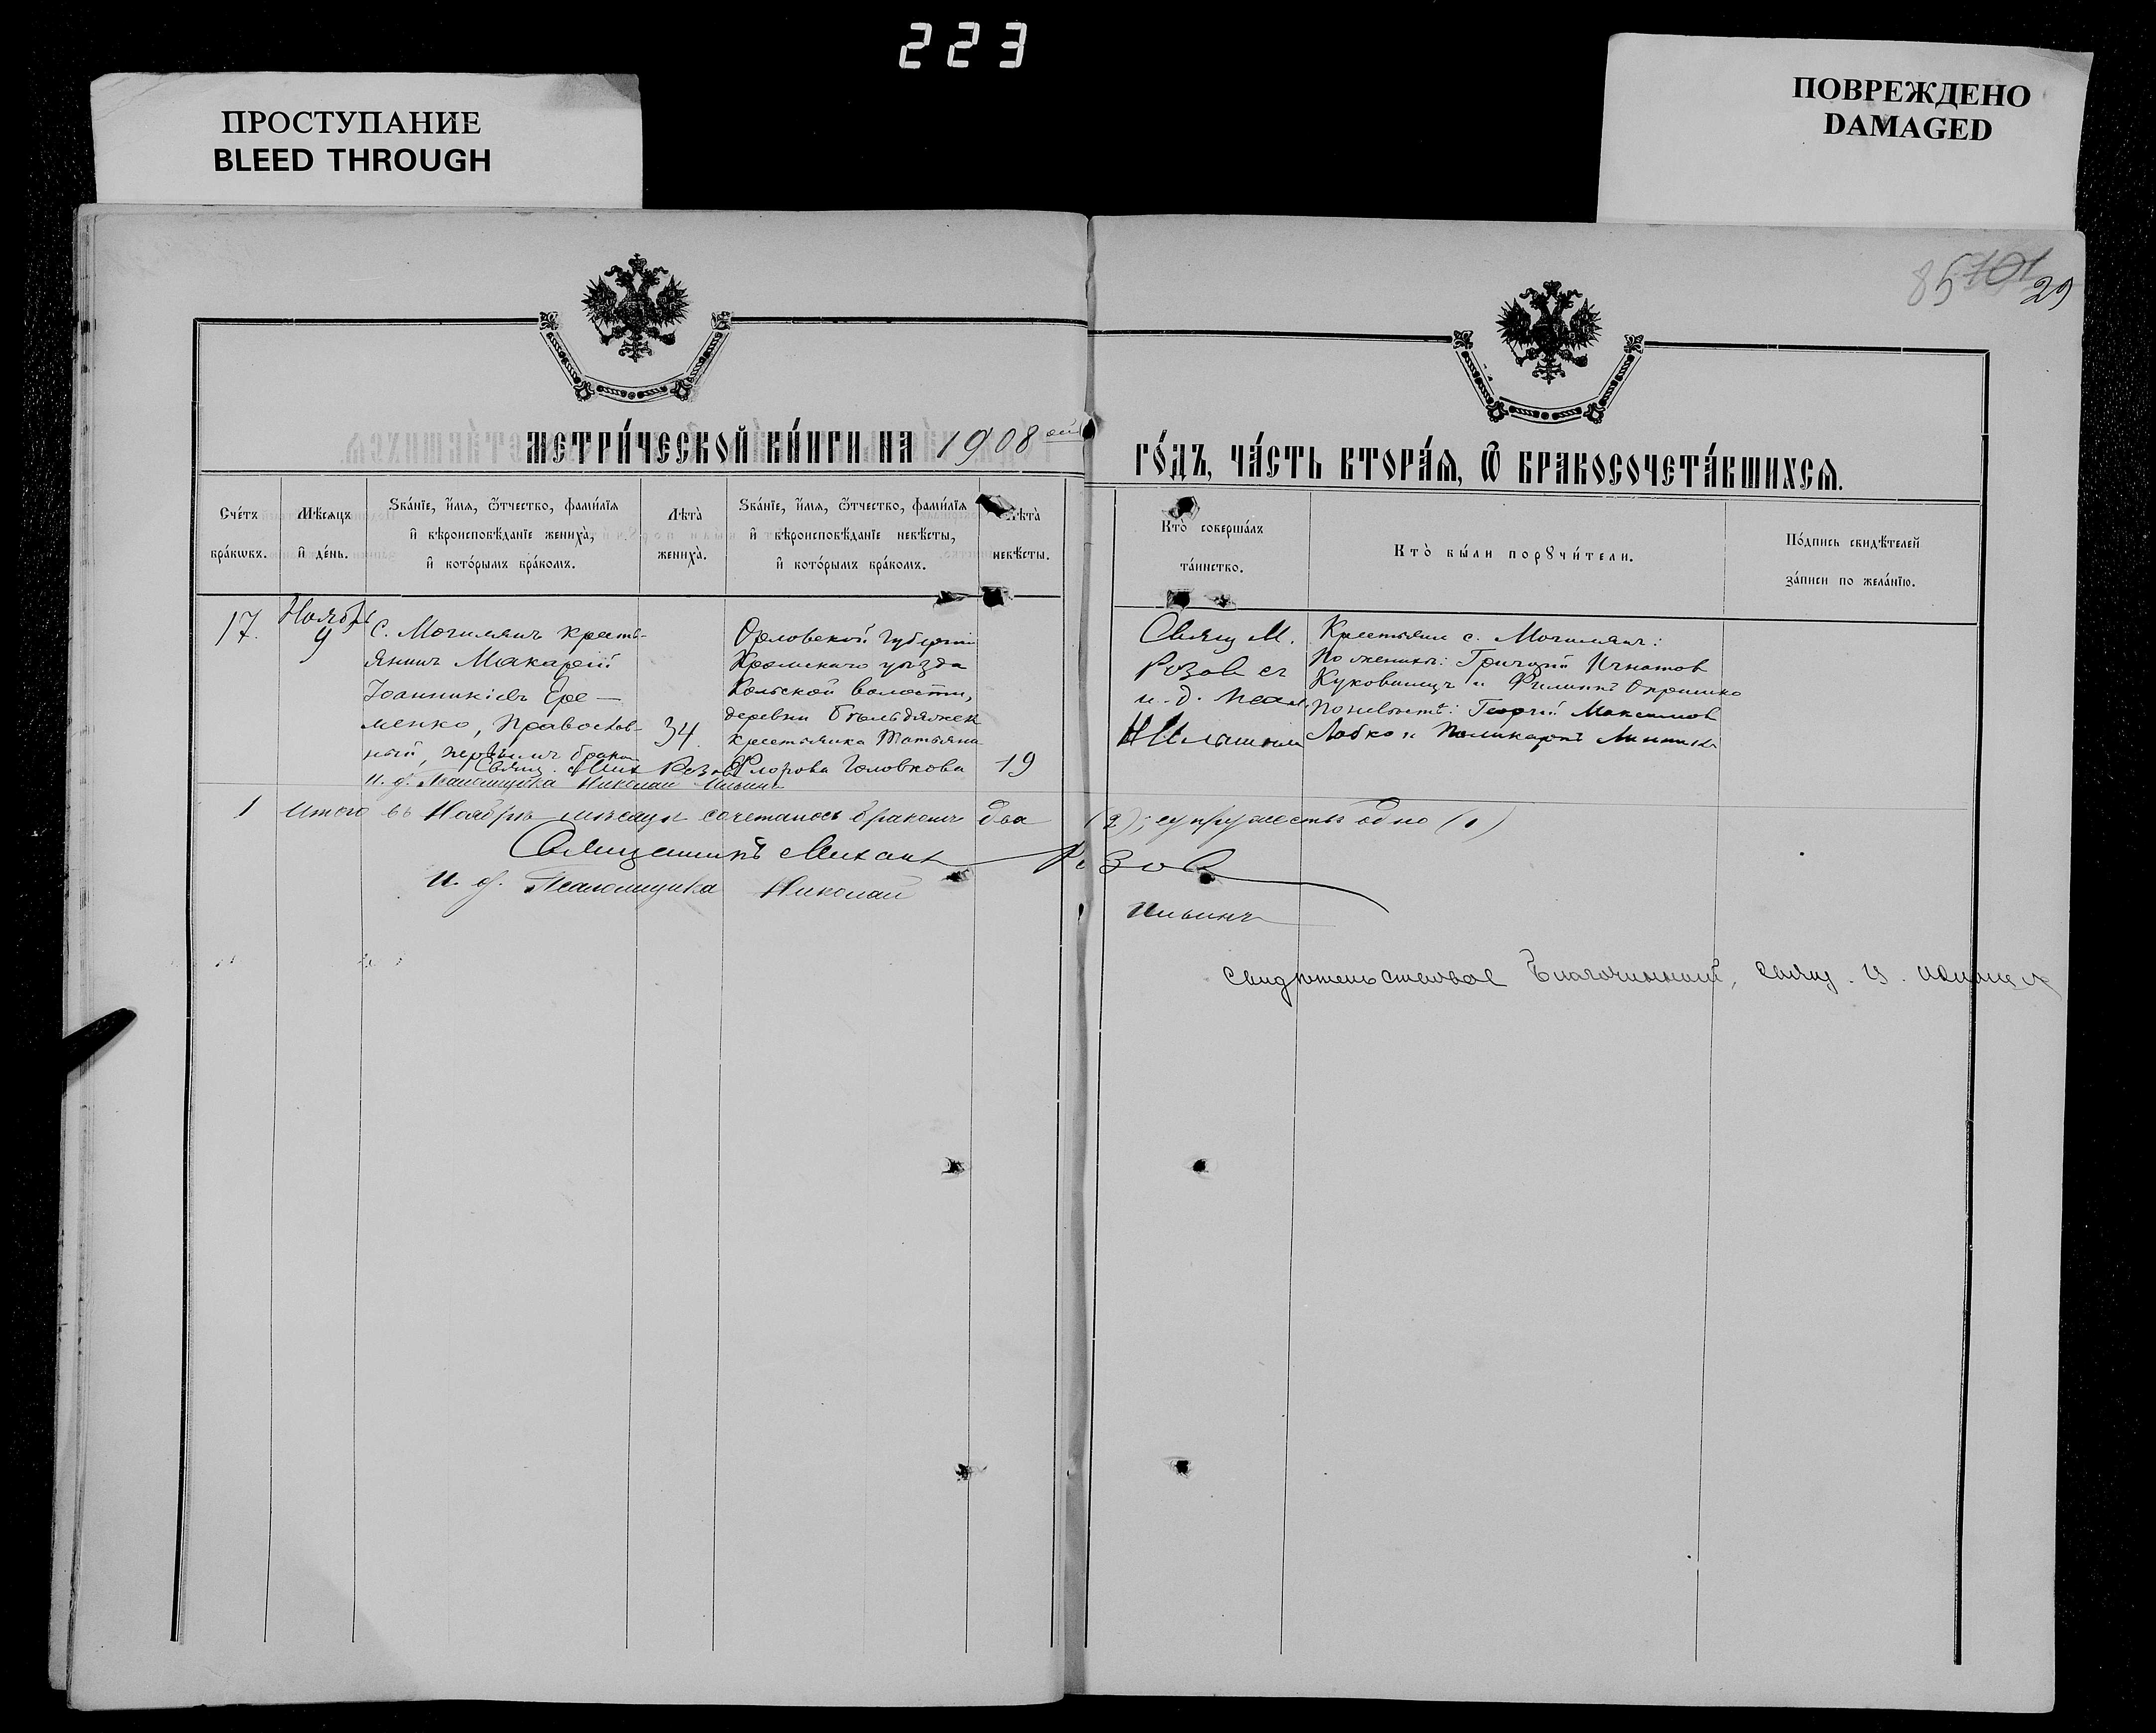 223
ПРОСТУПАНИЕ
BLEED THROUGH
ПОВРЕЖДЕНО
DAMAGED
85 101 29
МЕТРИ́ЧЕСКОЙ КНИ́ГИ НА 1908 ой
ГО́ДЪ, ЧА́СТЬ ВТОРА́Я, Ѿ БРАКОСОЧЕТА́ВШИХСЯ.
Сче́тъ
бра́кѡвъ.
Мѣ́сяцъ
и҆ де́нь.
Ѕва́нїе, и҆́мя, ѻ҆́тчество, фами́лїя
и҆ вѣроисповѣ́данїе жениха̀,
и҆ кото́рымъ бра́комъ.
Лѣта̀
жениха̀.
Ѕва́нїе, и҆́мя, ѻ҆́тчество, фами́лїя
и҆ вѣроисповѣ́данїе невѣ́сты,
и҆ кото́рымъ бра́комъ.
Лѣта̀
невѣ́сты.
Кто̀ соверша́лъ
та́инство.
Кто̀ бы́ли порꙋчи́тели.
По́дпись свидѣ́телей
за́писи по жела́нїю.
17.
Ноябрь
9
С. Могилянъ кресть-
янинъ Макарій
Іоанникіевъ Ере-
менко, православ-
ный, первымъ бракомъ
34
Орловской губерніи
Кромскаго уѣзда
волости,
деревни
крестьянка Татьяна
Флорова Головкова
19
Свящ. М.
Розовъ съ
и. д. псал.
Н Ильинымъ
Крестьяне с. Могилянъ:
По женихѣ: Григорій Игнатов
и Филиппъ
По невѣстѣ: Георгій Максимов
Лобко и Поликарпъ
Свящ. Мих Розовъ
и. д. Псаломщика Николай Ильинъ
1 Итого въ Ноябрѣ мѣсяцѣ сочеталось бракомъ два (2); супружествъ одно (1)
Священникъ Михаилъ Розовъ
И. д. Псаломщика Николай Ильинъ
Свидѣтельствовал Благочинный, свящ.